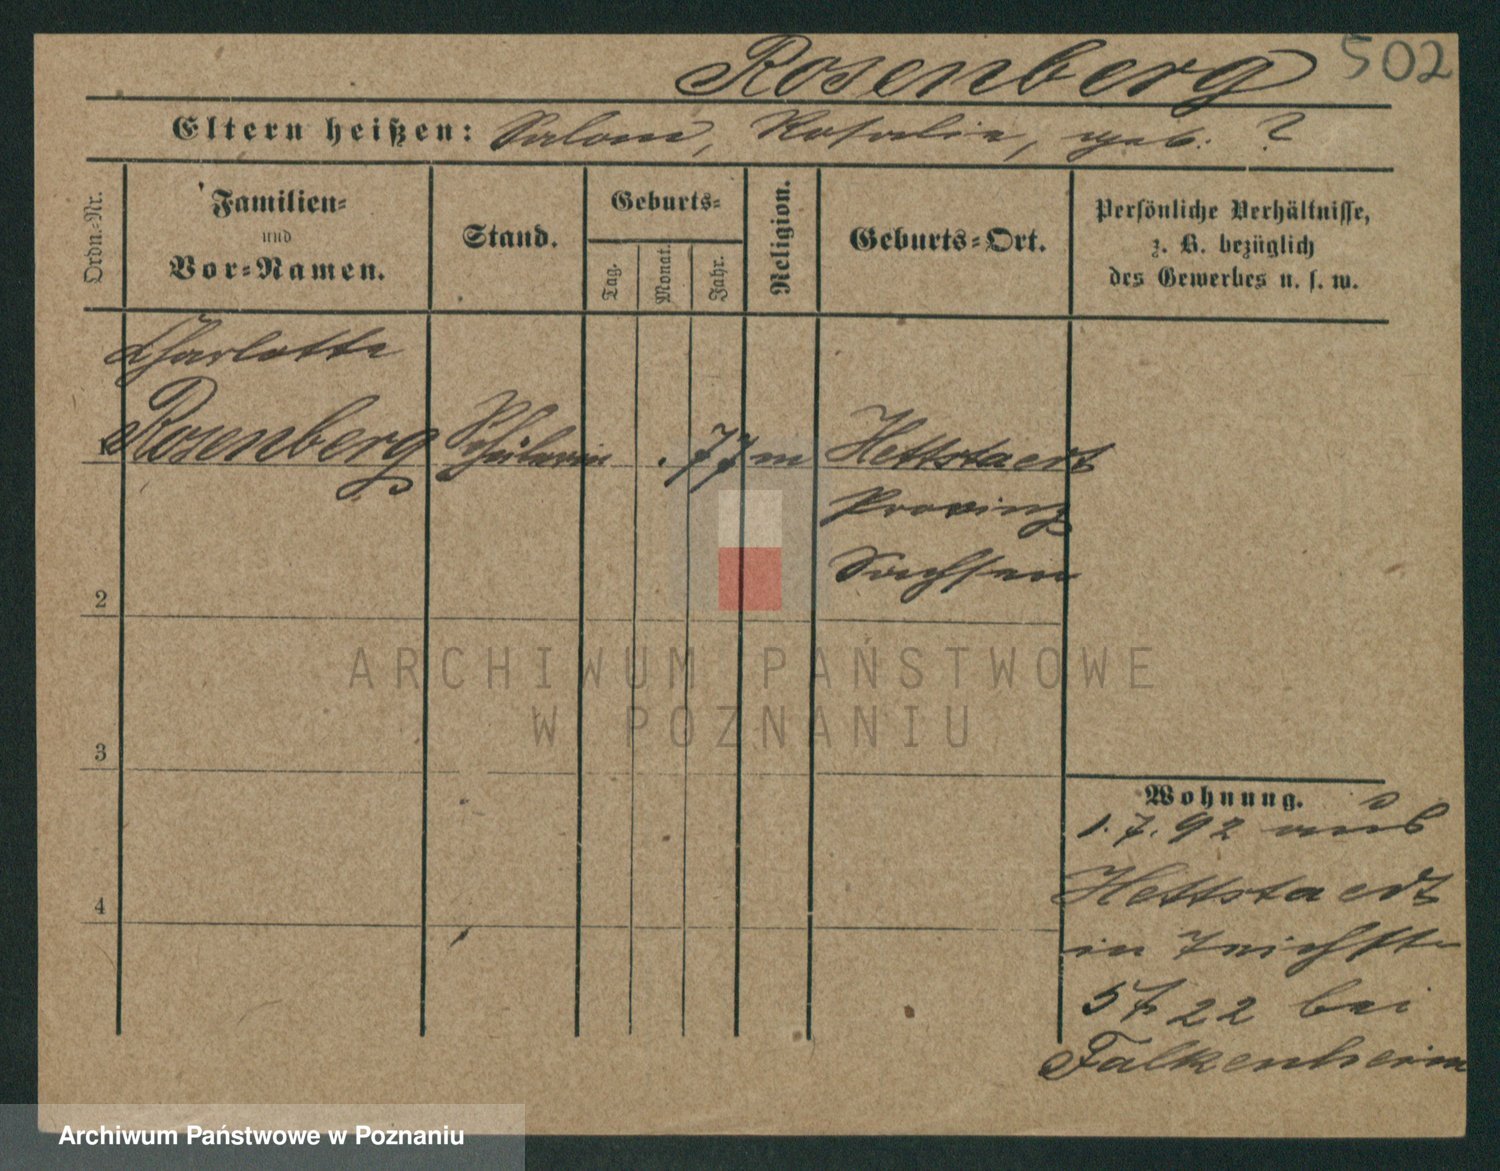 Rosenberg 502
Eltern heißen: Salom, Rosalie, geb. ?
Ordn.-Nr.
Familien-
und
Vor-Namen.
Stand.
Geburts-
Tag.
Monat.
Jahr.
Religion.
Geburts-Ort.
Persönliche Verhältnisse,
z. B. bezüglich
des Gewerbes u. s. w.
Charlotte
1 Rosenberg Schülerin 77 m Hettstaedt
Provinz
Sachsen
2
3
4
Wohnung.
1.7.92 aus
Hettstaedt
in
22 bei
Falkenheim
ARCHIWUM PAŃSTWOWE
W POZNANIU
Archiwum Państwowe w Poznaniu